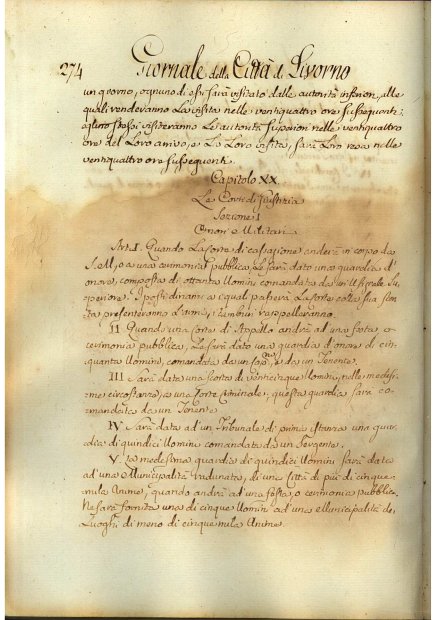 274 Giornale della Città di Livorno
un giorno, ognuno di essi sarà visitato dalle autorità inferiori, alle
quali renderanno la visita nelle ventiquattro ore susseguenti;
eglino stessi visiteranno le autorità superiori nelle ventiquattro
ore del loro arrivo, e la loro visita, sarà loro resa nelle
ventiquattro ore susseguenti.
Capitolo XX.
Le Corti di Giustizia
Sezione I
Onori e Militari
Art. I. Quando la Corte di Cassazione anderà in corpo da
S. M., o a una cerimonia pubblica, le sarà dato una guardia d'
onore, composta di ottanta Uomini comandata da un Uffiziale Su-
periore. I posti dinanzi a i quali passerà la Corte colla sua scor-
ta presenteranno l'armi, i tamburi rappelleranno.
II Quando una Corte di Appello andrà ad una festa, o
cerimonia pubblica, le sarà dato una guardia d'onore di cin-
quanta Uomini, comandata da un Capno, e da un Tenente.
III Sarà data una scorta di venticinque Uomini, nelle medesi-
me circostanze, a una Corte Criminale; questa guardia sarà co-
mandata da un Tenente
IV Sarà data ad un Tribunale di prima istanza una guar-
dia di quindici Uomini comandata da un Sergente.
V. la medesima guardia di quindici Uomini sarà data
ad una Municipalità radunata, di una Città di più di cinque
mila Anime, quando andrà ad una festa o cerimonia pubblica.
Ne sarà fornita una di cinque Uomini ad una Municipalità de'
Luoghi di meno di cinque mila Anime.